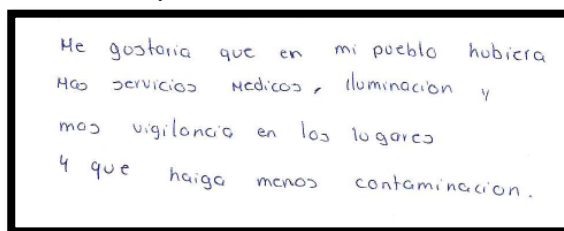 Me gustaria que en mi pueblo hubiera
Mas servicios Medicos, iluminacion y
mas vigilancia en los lugares
y que haiga menos contaminacion.